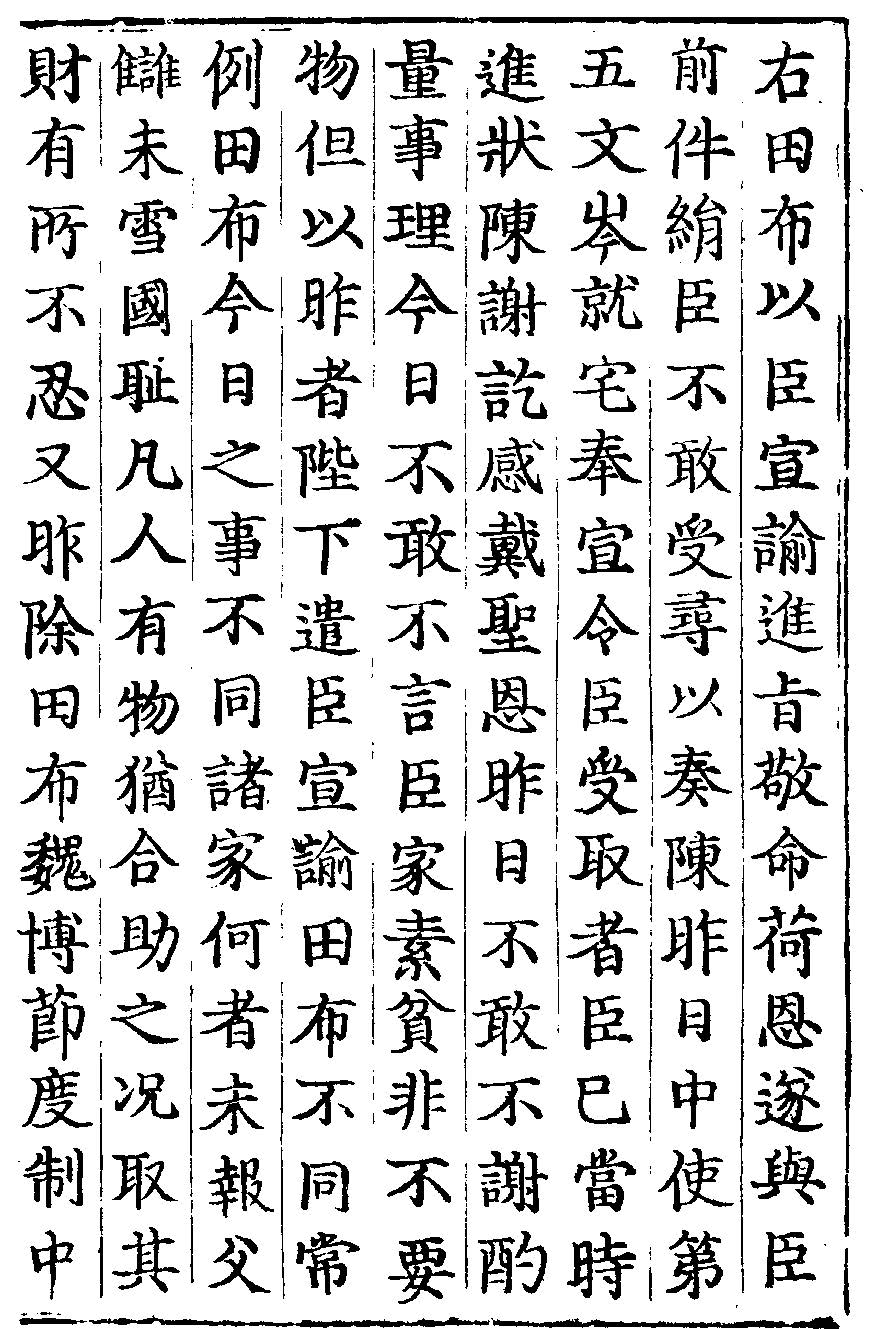 右田布以臣宣諭進㫖敬命荷恩遂與臣
前件絹臣不敢受尋以奏陳昨日中使第
五文岑就宅奉宣令臣受取者臣已當時
進狀陳謝訖感戴聖恩昨日不敢不謝酌
量事理今日不敢不言臣家素貧非不要
物但以昨者陛下遣臣宣諭田布不同常
例田布今日之事不同諸家何者未報父
讎未雪國恥凡人有物猶合助之况取其
財有所不忍又昨除田布魏博節度制中